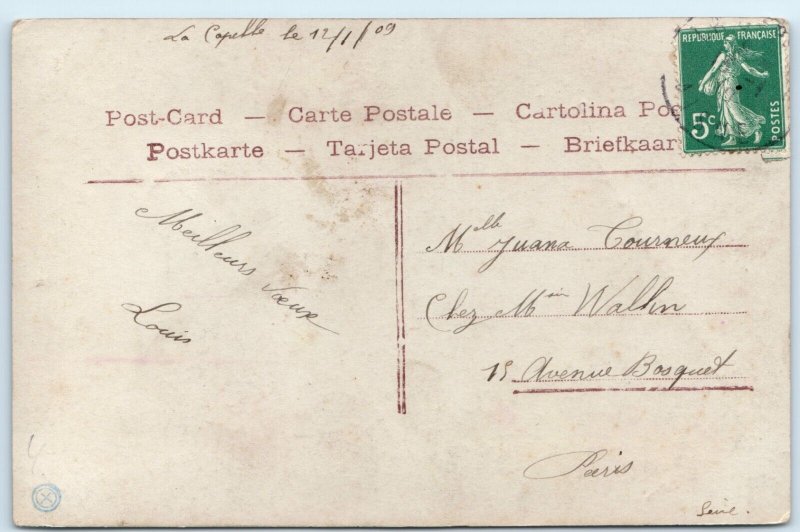 La Capelle le 12/1/09
REPUBLIQUE FRANÇAISE
5c
POSTES
Post-Card — Carte Postale — Cartolina Pos
Postkarte — Tarjeta Postal — Briefkaar
Meilleurs Vœux
Louis
Mlle Juana Tourneux
Chez Mr
15 Avenue Bosquet
Paris
Seine.